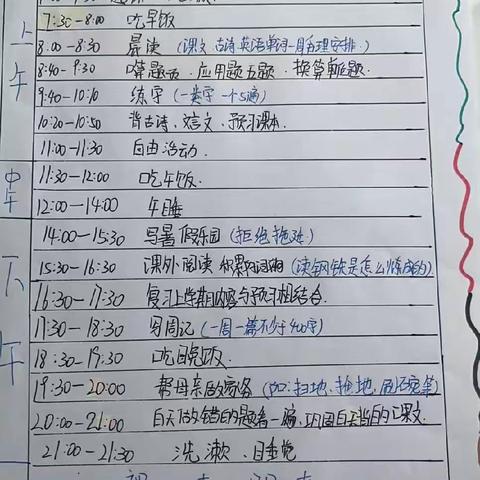 上午
7:30-8:00 吃早饭
8:00-8:30 晨读 (课文 古诗 英语单词一周合理安排.)
8:40-9:30 口算题一页、应用题五题、换算单位题.
9:40-10:10 练字 (一类字一个5遍)
10:20-10:50 背古诗、文言文、预习课本.
11:00-11:30 自由活动.
中午
11:30-12:00 吃午饭.
12:00-14:00 午睡
下午
14:00-15:30 写暑假乐园 (拒绝拖延)
15:30-16:30 课外阅读 积累好词好句 (读钢铁是怎么炼成的)
16:30-17:30 复习上学期内容与预习相结合.
17:30-18:30 写周记 (一周一篇不少于400字)
18:30-19:30 吃晚饭.
19:30-20:00 帮母亲做家务 (如:扫地、拖地、刷碗等)
20:00-21:00 白天做错的题看一遍,巩固白天背的课文.
21:00-21:30 洗漱、睡觉